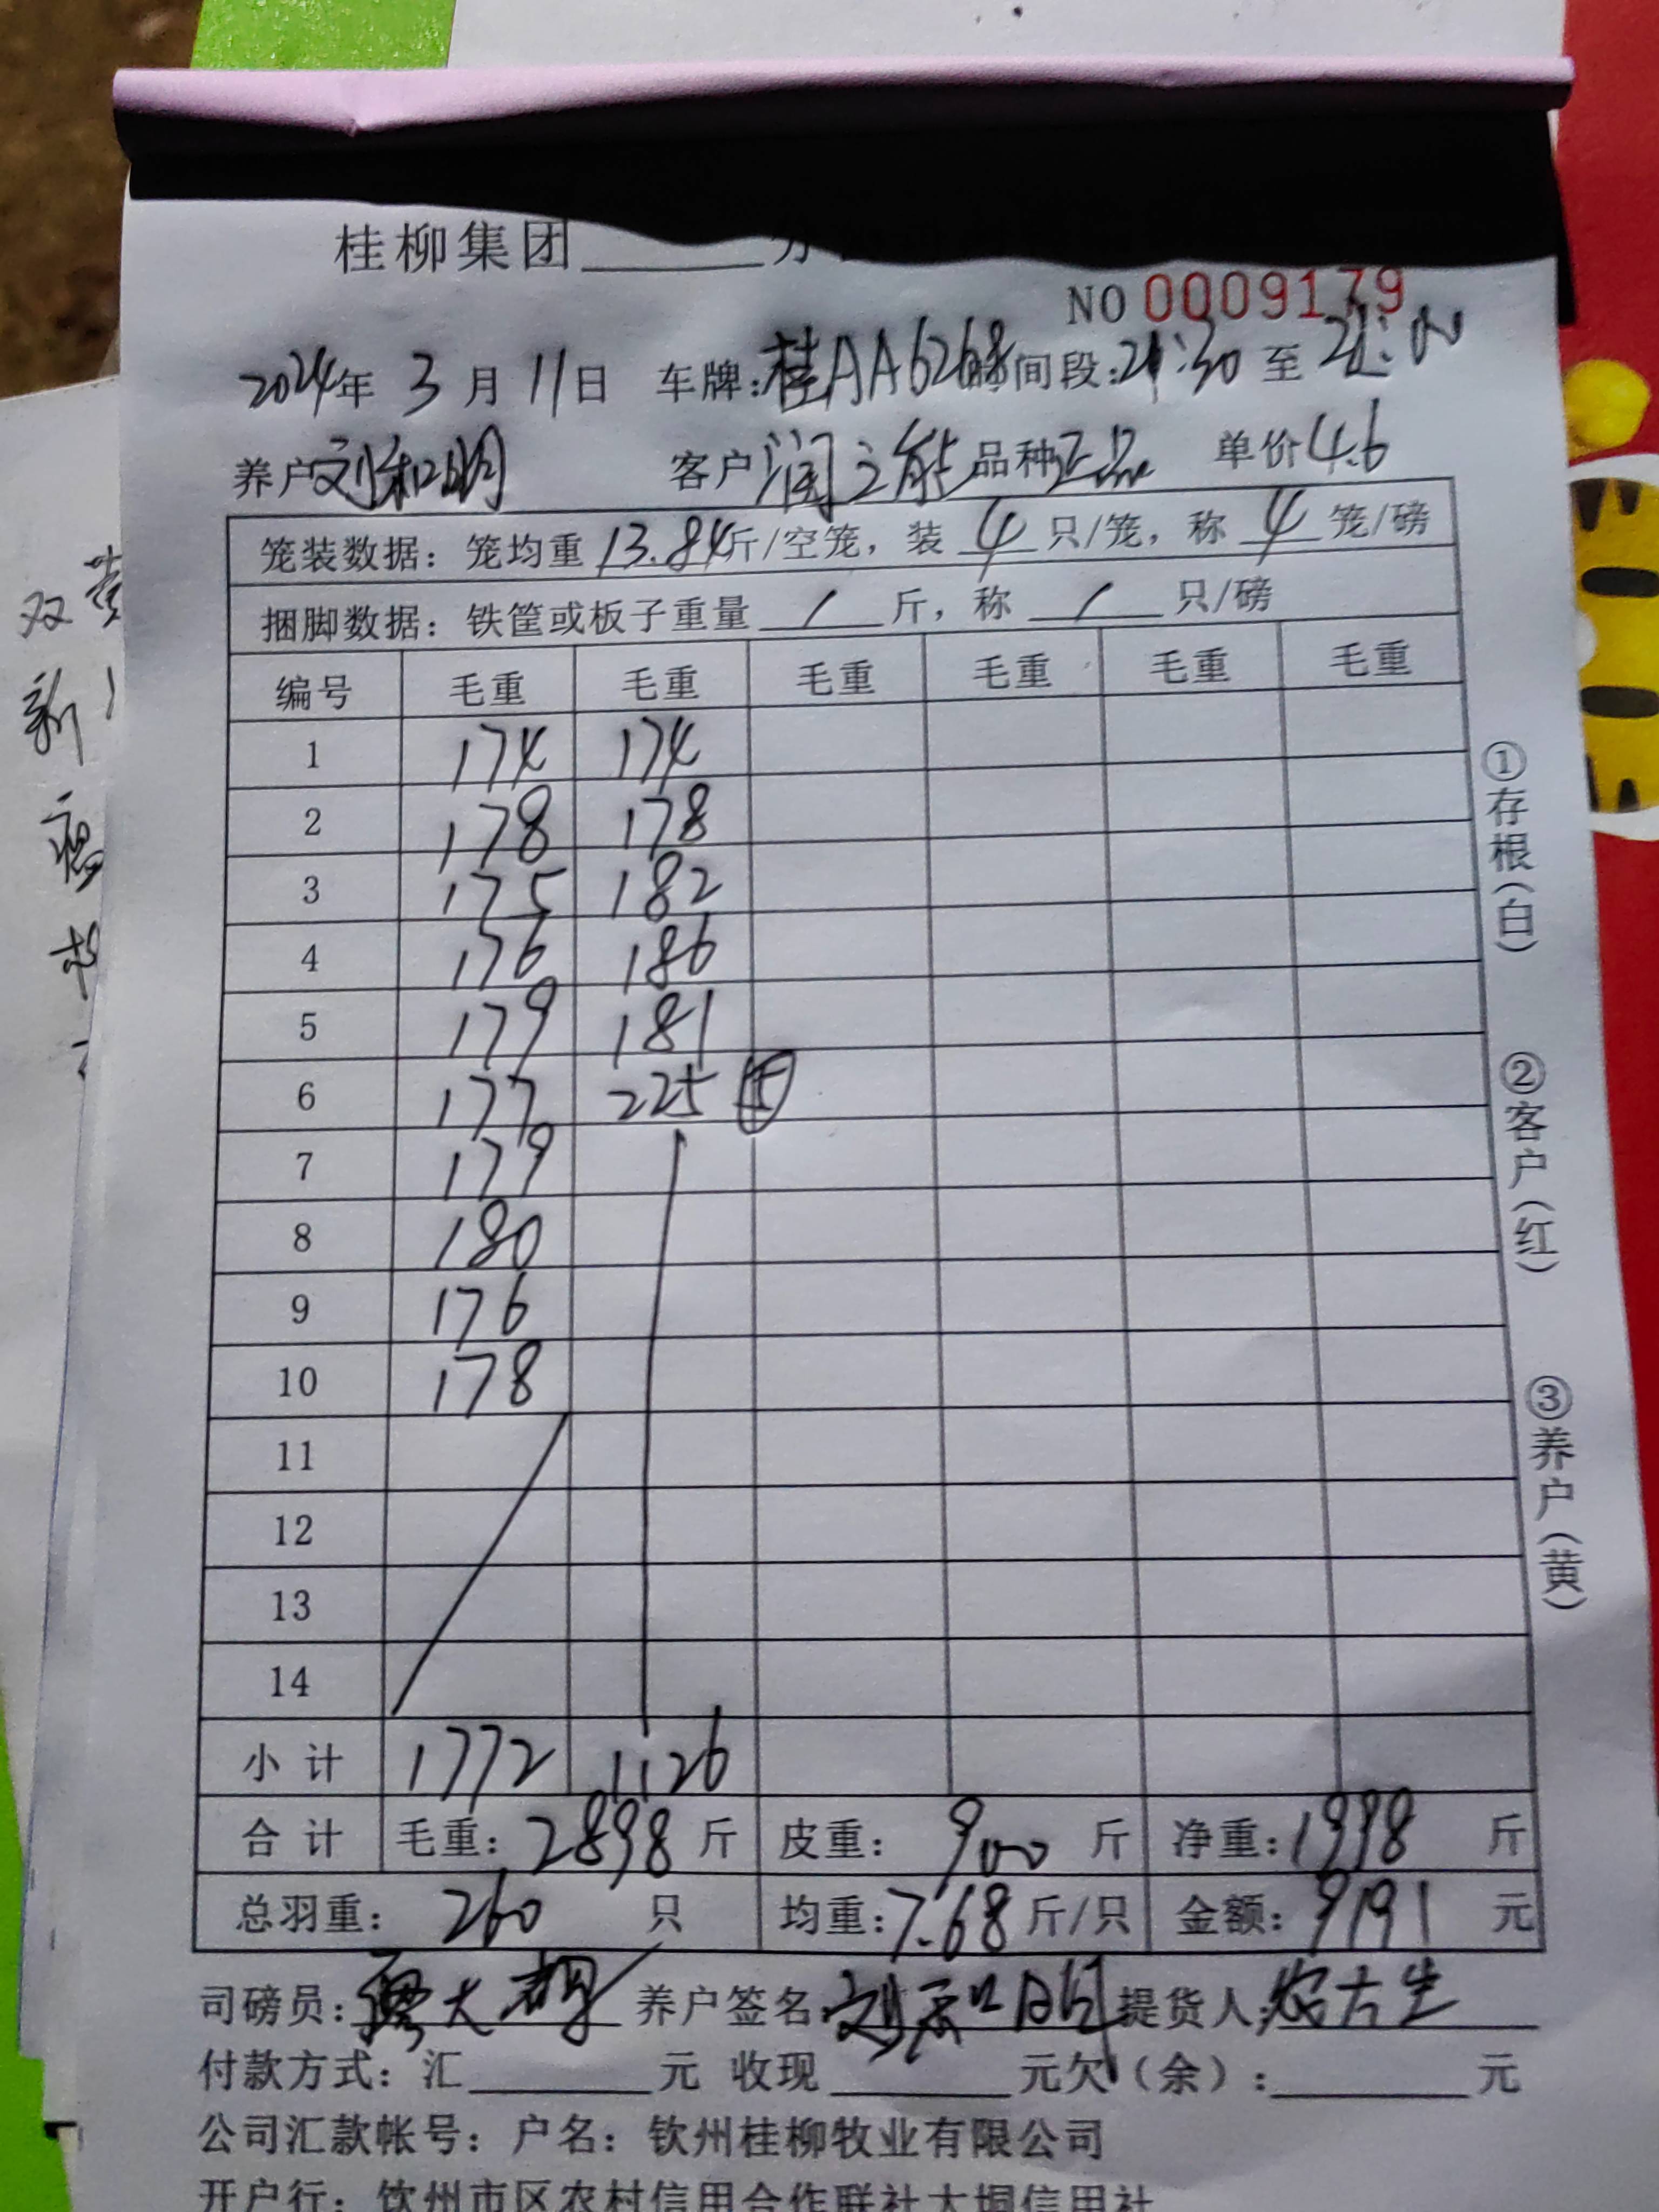 桂柳集团______分
NO 0009179
2024年 3 月 11日 车牌:桂AA6268时间段:21:30 至
养户刘和明 客户润之能品种正品 单价4.6
笼装数据: 笼均重 13.84斤/空笼, 装 4 只/笼, 称 4 笼/磅
捆脚数据: 铁筐或板子重量 / 斤, 称 / 只/磅
编号 毛重 毛重 毛重 毛重 毛重 毛重
1 174 174
2 178 178
3 175 182
4 176 186
5 179 181
6 177 225
7 179
8 180
9 176
10 178
11
12
13
14
小计 1772 1126
合计 毛重: 2898 斤 皮重: 900 斤 净重: 1998 斤
总羽重: 260 只 均重: 7.68 斤/只 金额: 9191 元
司磅员: 养户签名: 刘和明 提货人:
付款方式: 汇______元 收现______元欠(余):______元
公司汇款帐号: 户名: 钦州桂柳牧业有限公司
开户行: 钦州市区农村信用合作联社大垌信用社
①存根(白)
②客户(红)
③养户(黄)
双
新